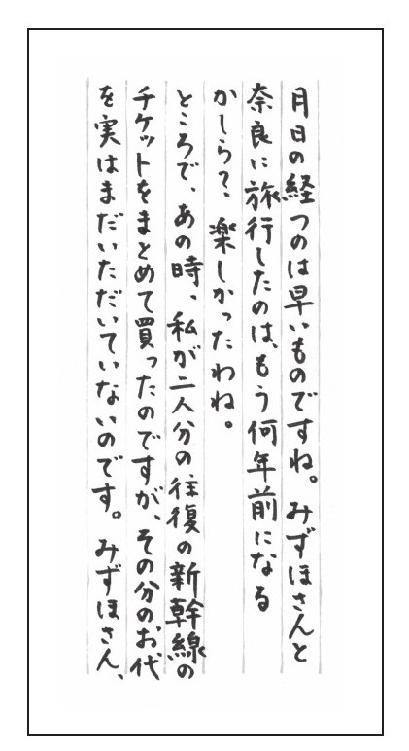 月日の経つのは早いものですね。みずほさんと
奈良に旅行したのは、もう何年前になる
かしら？、楽しかったわね。
ところで、あの時、私が二人分の往復の新幹線の
チケットをまとめて買ったのですが、その分のお代
を実はまだいただいていないのです。みずほさん、